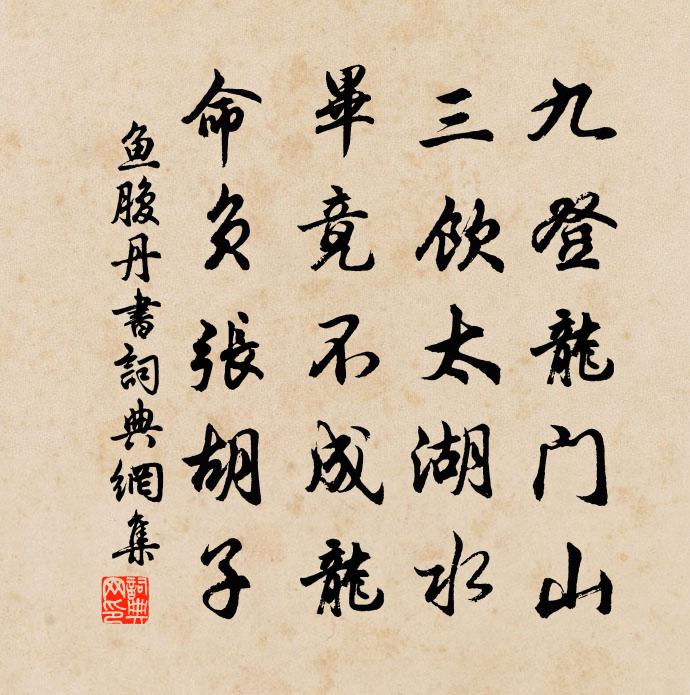 九登龍门山
三飲太湖水
畢竟不成龍
命負張胡子
魚腹丹書詞典網集
詞典網印